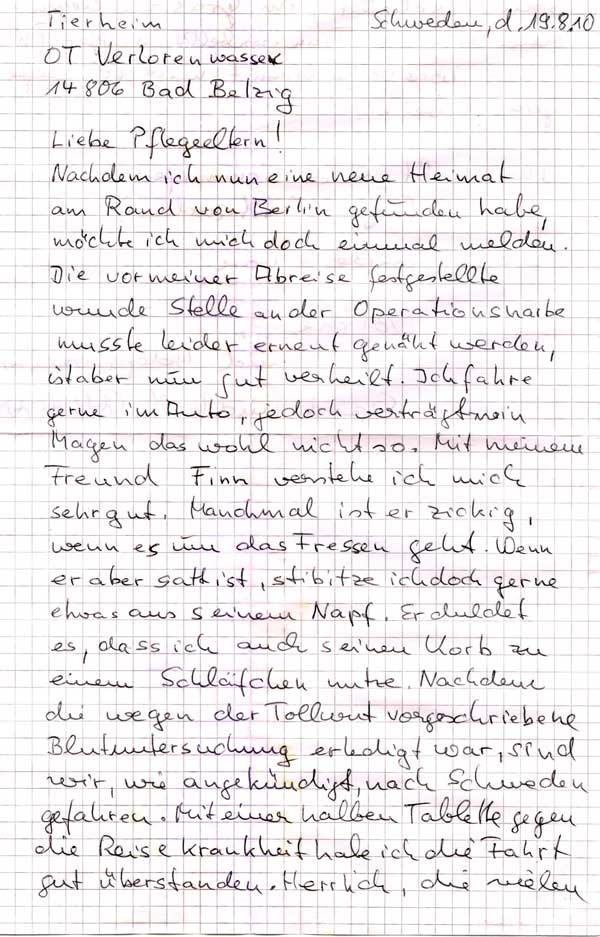 Tierheim Schweden, d. 19.8.10
OT Verlorenwasser
14806 Bad Belzig
Liebe Pflegeeltern!
Nachdem ich nun eine neue Heimat
am Rand von Berlin gefunden habe,
möchte ich mich doch einmal melden.
Die vor meiner Abreise festgestellte
wunde Stelle an der Operationsnarbe
musste leider erneut genäht werden,
ist aber nun gut verheilt. Ich fahre
gerne im Auto, jedoch verträgt mein
Magen das wohl nicht so. Mit meinem
Freund Finn verstehe ich mich
sehr gut. Manchmal ist er zickig,
wenn es um das Fressen geht. Wenn
er aber satt ist, stibitze ich doch gerne
etwas aus seinem Napf. Er duldet
es, dass ich auch seinen Korb zu
einem Schläfchen nutze. Nachdem
die wegen der Tollwut vorgeschriebene
Blutuntersuchung erledigt war, sind
wir, wie angekündigt, nach Schweden
gefahren. Mit einer halben Tablette gegen
die Reisekrankheit habe ich die Fahrt
gut überstanden. Herrlich, die vielen